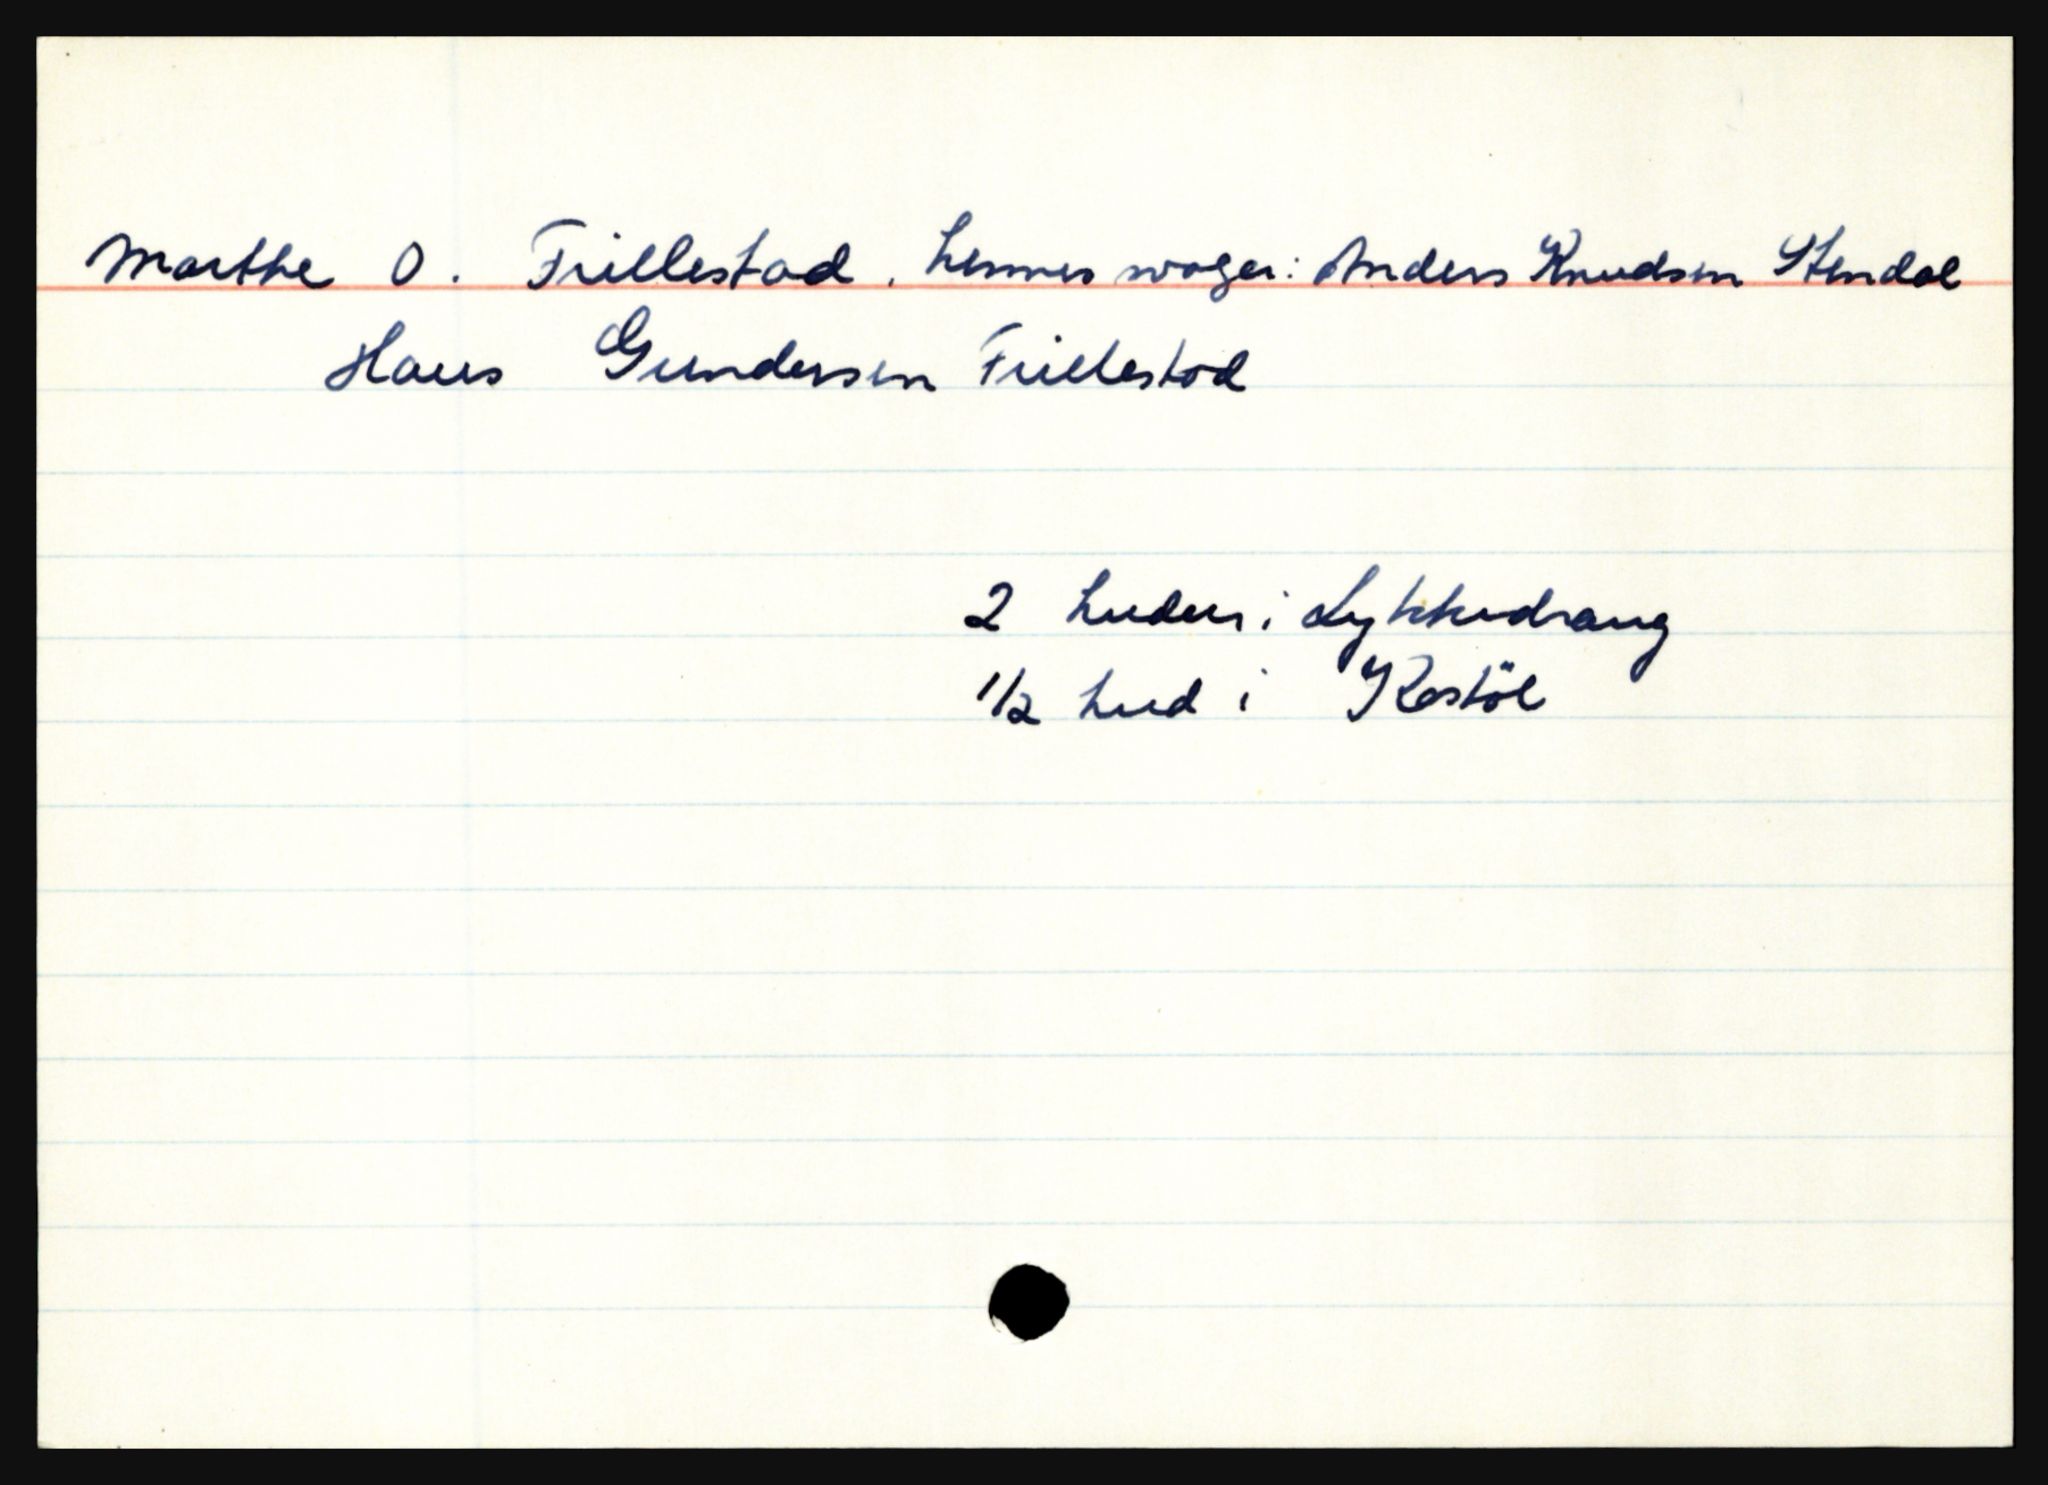 Marthe O. Frillestad, hennes svoger: Anders Knudsen Stendal
Hans Gundersen Frillestad
2 huder i Lykkedrang
1/2 hud i Röstöl